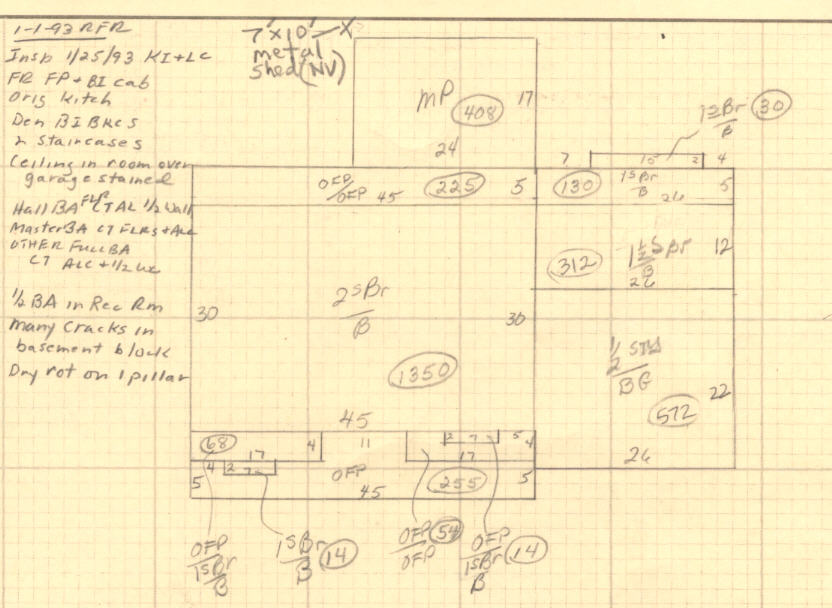 1-1-93 RFR
Insp 1/25/93 KI+LC
FR FP + BI cab
Orig Kitch
Den BI BKCS
2 Staircases
Ceiling in room over
garage stained
Hall BA FLR CT ALC 1/2 Wall
Master BA CT FLRS + ALC
OTHER FULL BA
CT ALC + 1/2 WL
1/2 BA in Rec Rm
Many Cracks in
basement block
Dry rot on 1 pillar
7'x10' X
metal
shed (NV)
MP 408 17
24
1SBr/B 30
7 15 2 4
OFP/OFP 45 225 5
130 1SBr/B 26 5
312 1 1/2 S Br/B 26 12
30 2SBr/B 30
1350
45
1/2 ST
BG
572 22
26
68 17 4 11 2 7 5 4
17
5 4 2 7 OFP 45 255 5
OFP/1SBr/B
1SBr/B 14
OFP/OFP 54
OFP/1SBr/B 14